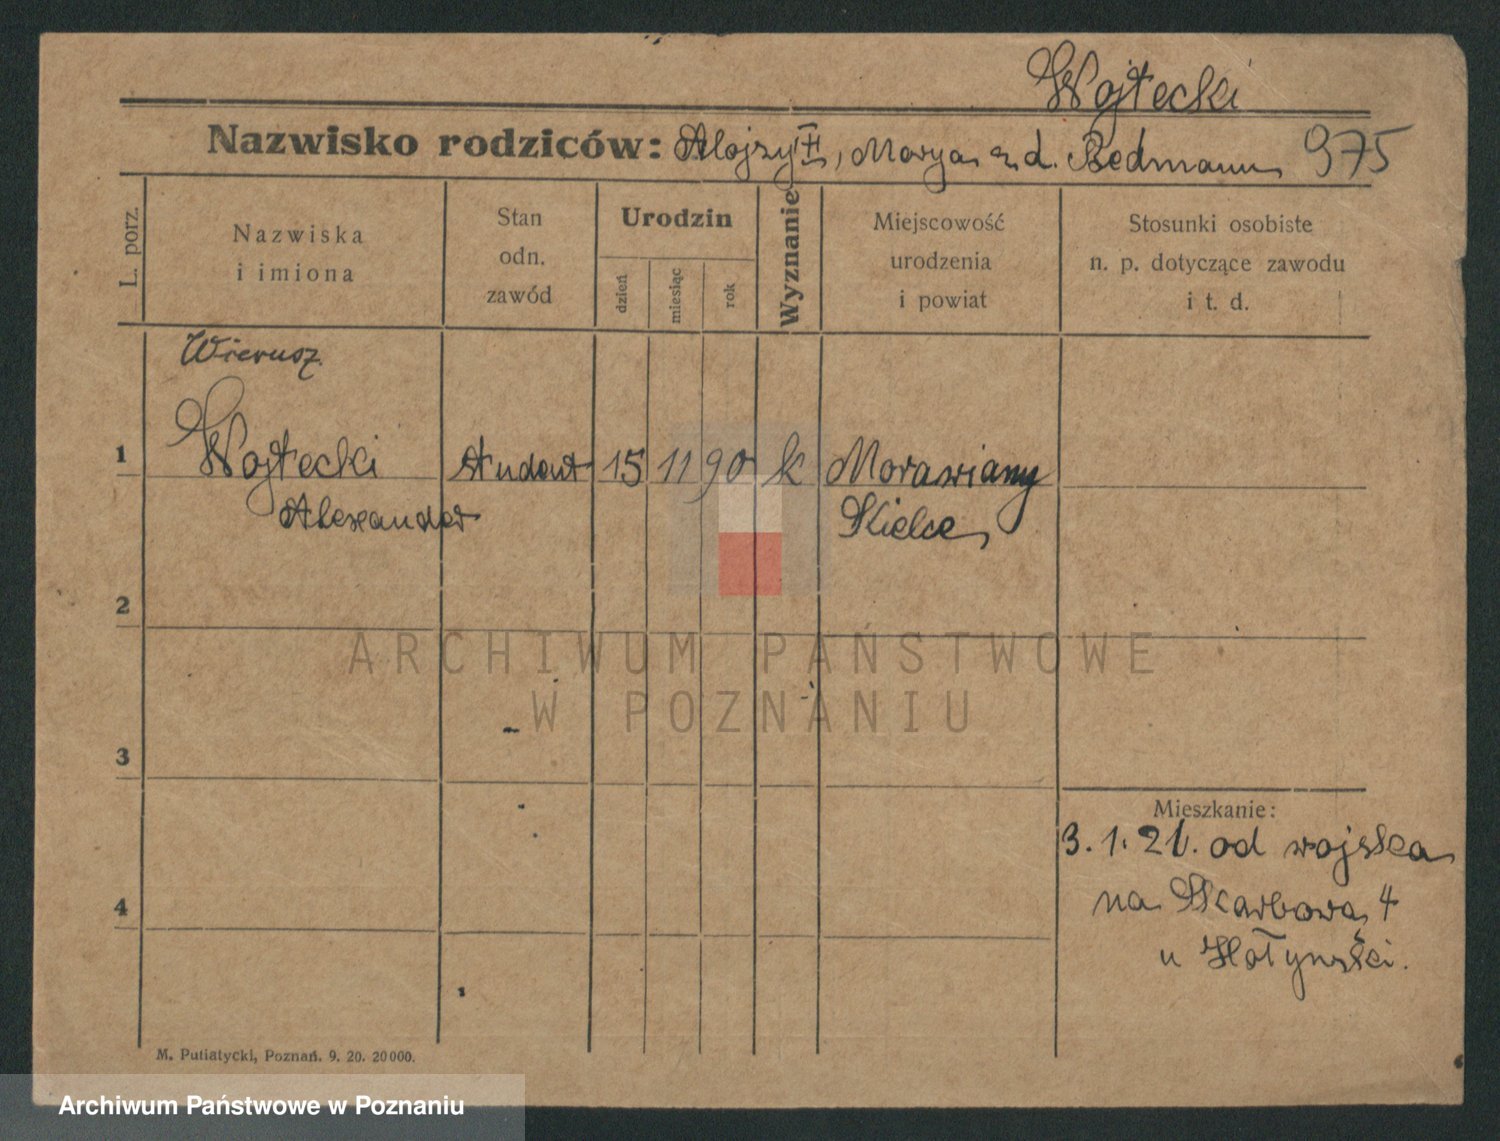 Wojtecki
Nazwisko rodziców: Alojzy, Marya z d. Redmann 975
L. porz.
Nazwiska
i imiona
Stan
odn.
zawód
Urodzin
dzień
miesiąc
rok
Wyznanie
Miejscowość
urodzenia
i powiat
Stosunki osobiste
n. p. dotyczące zawodu
i t. d.
Wierusz
1 Wojtecki student 15 11 90 k Morawiany
Alexander Kielce
2
ARCHIWUM PAŃSTWOWE
W POZNANIU
3
Mieszkanie:
3. 1. 21. od wojska
4 na Skarbową 4
u Hołyński.
M. Putiatycki, Poznań. 9. 20. 20000.
Archiwum Państwowe w Poznaniu